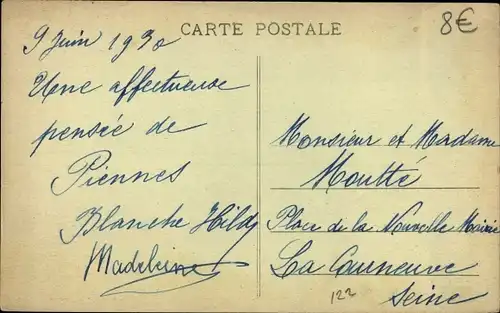 CARTE POSTALE
8€
9 Juin 1930
Une affectueuse
pensée de
Piennes
Blanche Hildy
Madeleine
Monsieur et Madame
Moutté
Place de la Nouvelle Mairie
La Courneuve
Seine
122